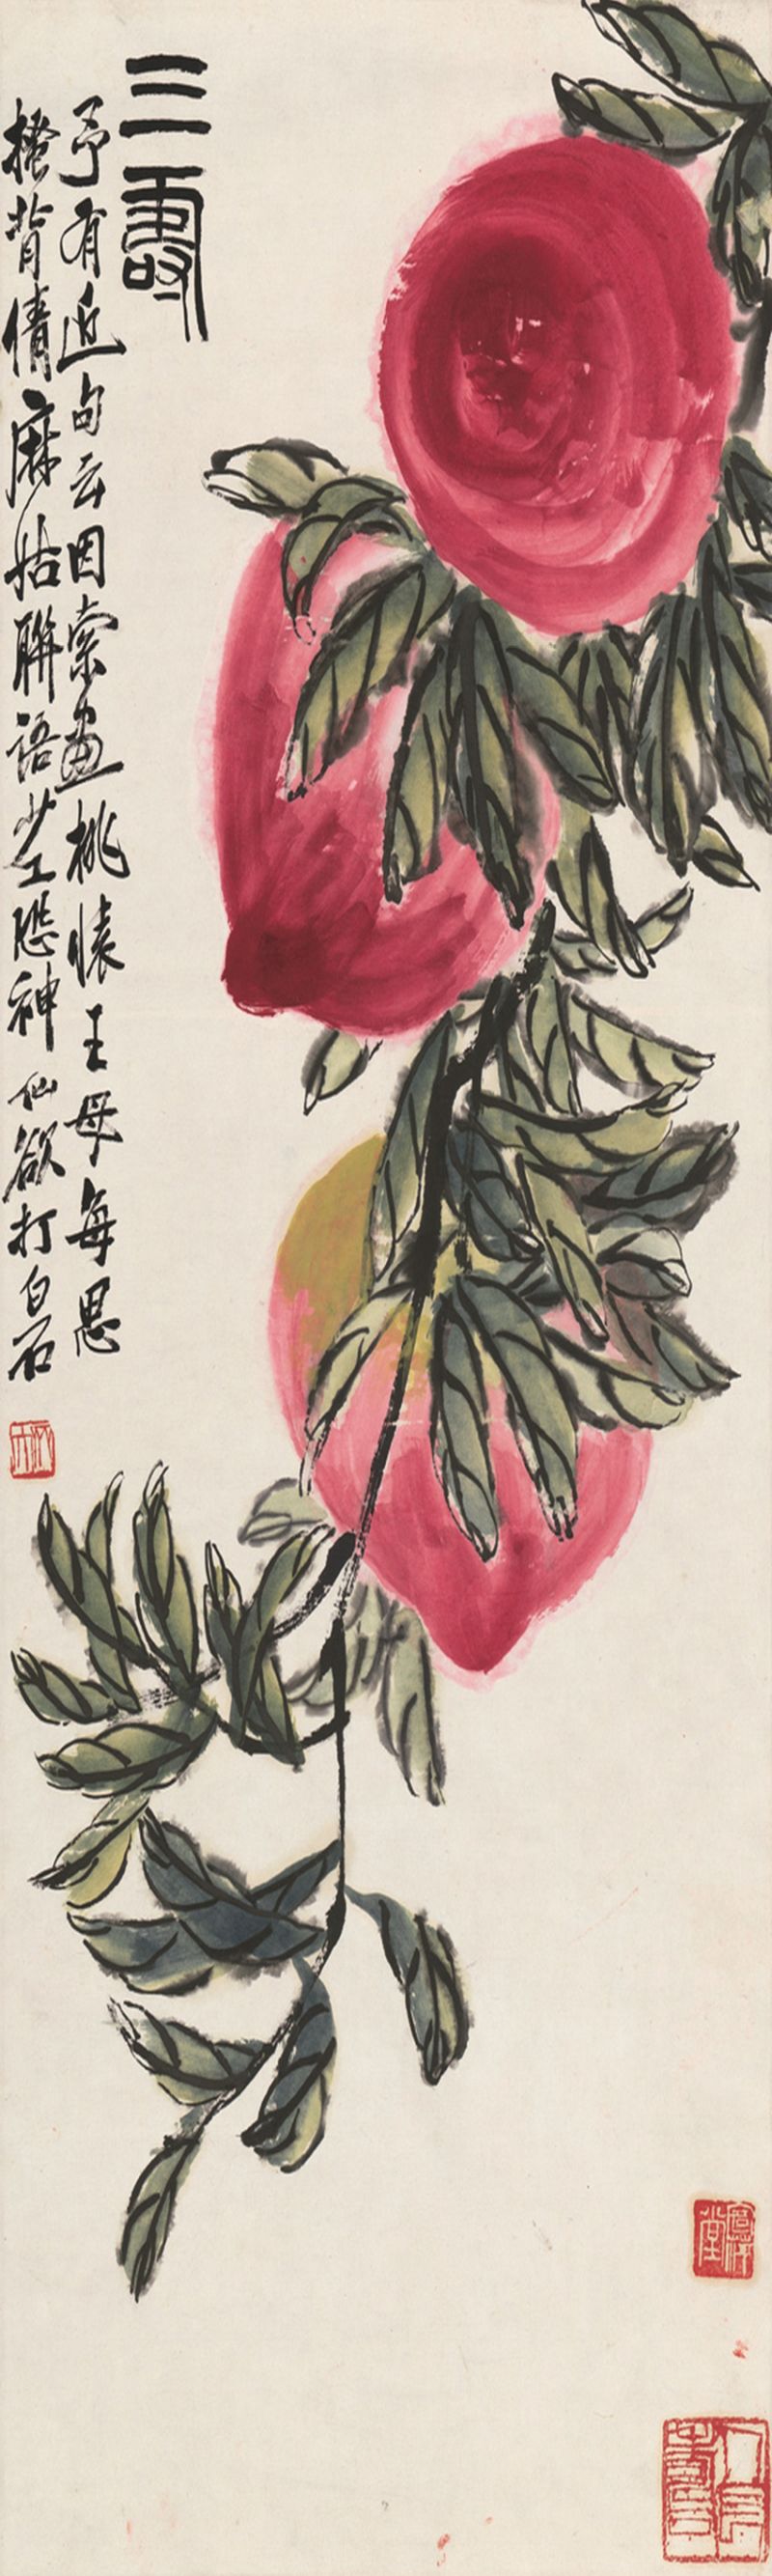 三壽
予有近句云因索畫桃懷王母每思
搔背倩麻姑聯語少工恐神仙欲打白石
寄萍堂